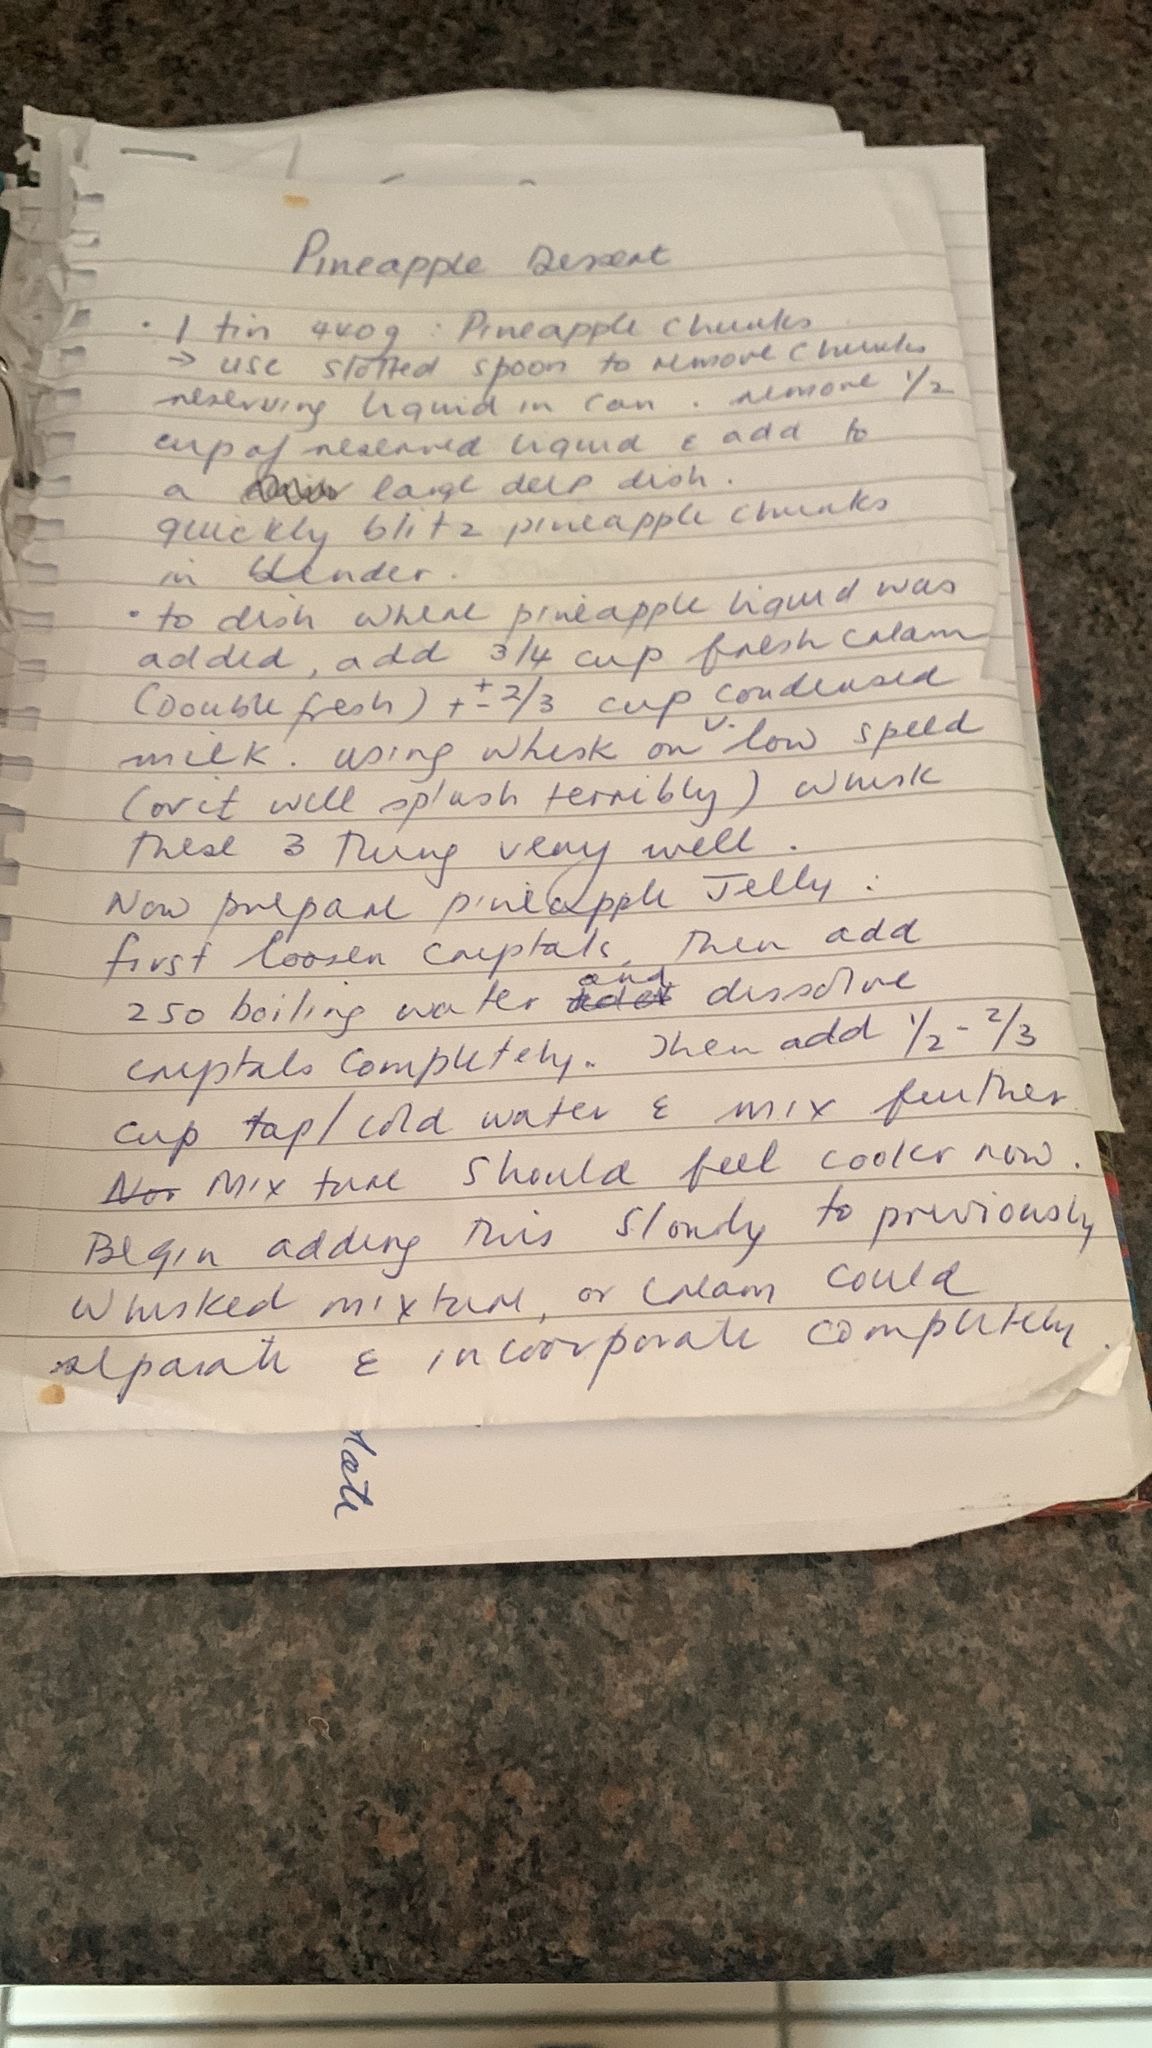 Pineapple Dessert
· 1 tin 440g : Pineapple chunks
→ use slotted spoon to remove chunks
reserving liquid in can. remove 1/2
cup of reserved liquid & add to
a large deep dish.
quickly blitz pineapple chunks
in blender.
· to dish where pineapple liquid was
added, add 3/4 cup fresh cream
(Double fresh) + ± 2/3 cup condensed
milk. using whisk on v. low speed
(or it will splash terribly) whisk
these 3 thing very well.
Now prepare pineapple Jelly :
first loosen crystals, then add
250 boiling water and dissolve
crystals completely. Then add 1/2 - 2/3
cup tap/cold water & mix further
Mixture should feel cooler now.
Begin adding this slowly to previously
whisked mixture, or cream could
separate & incorporate completely.